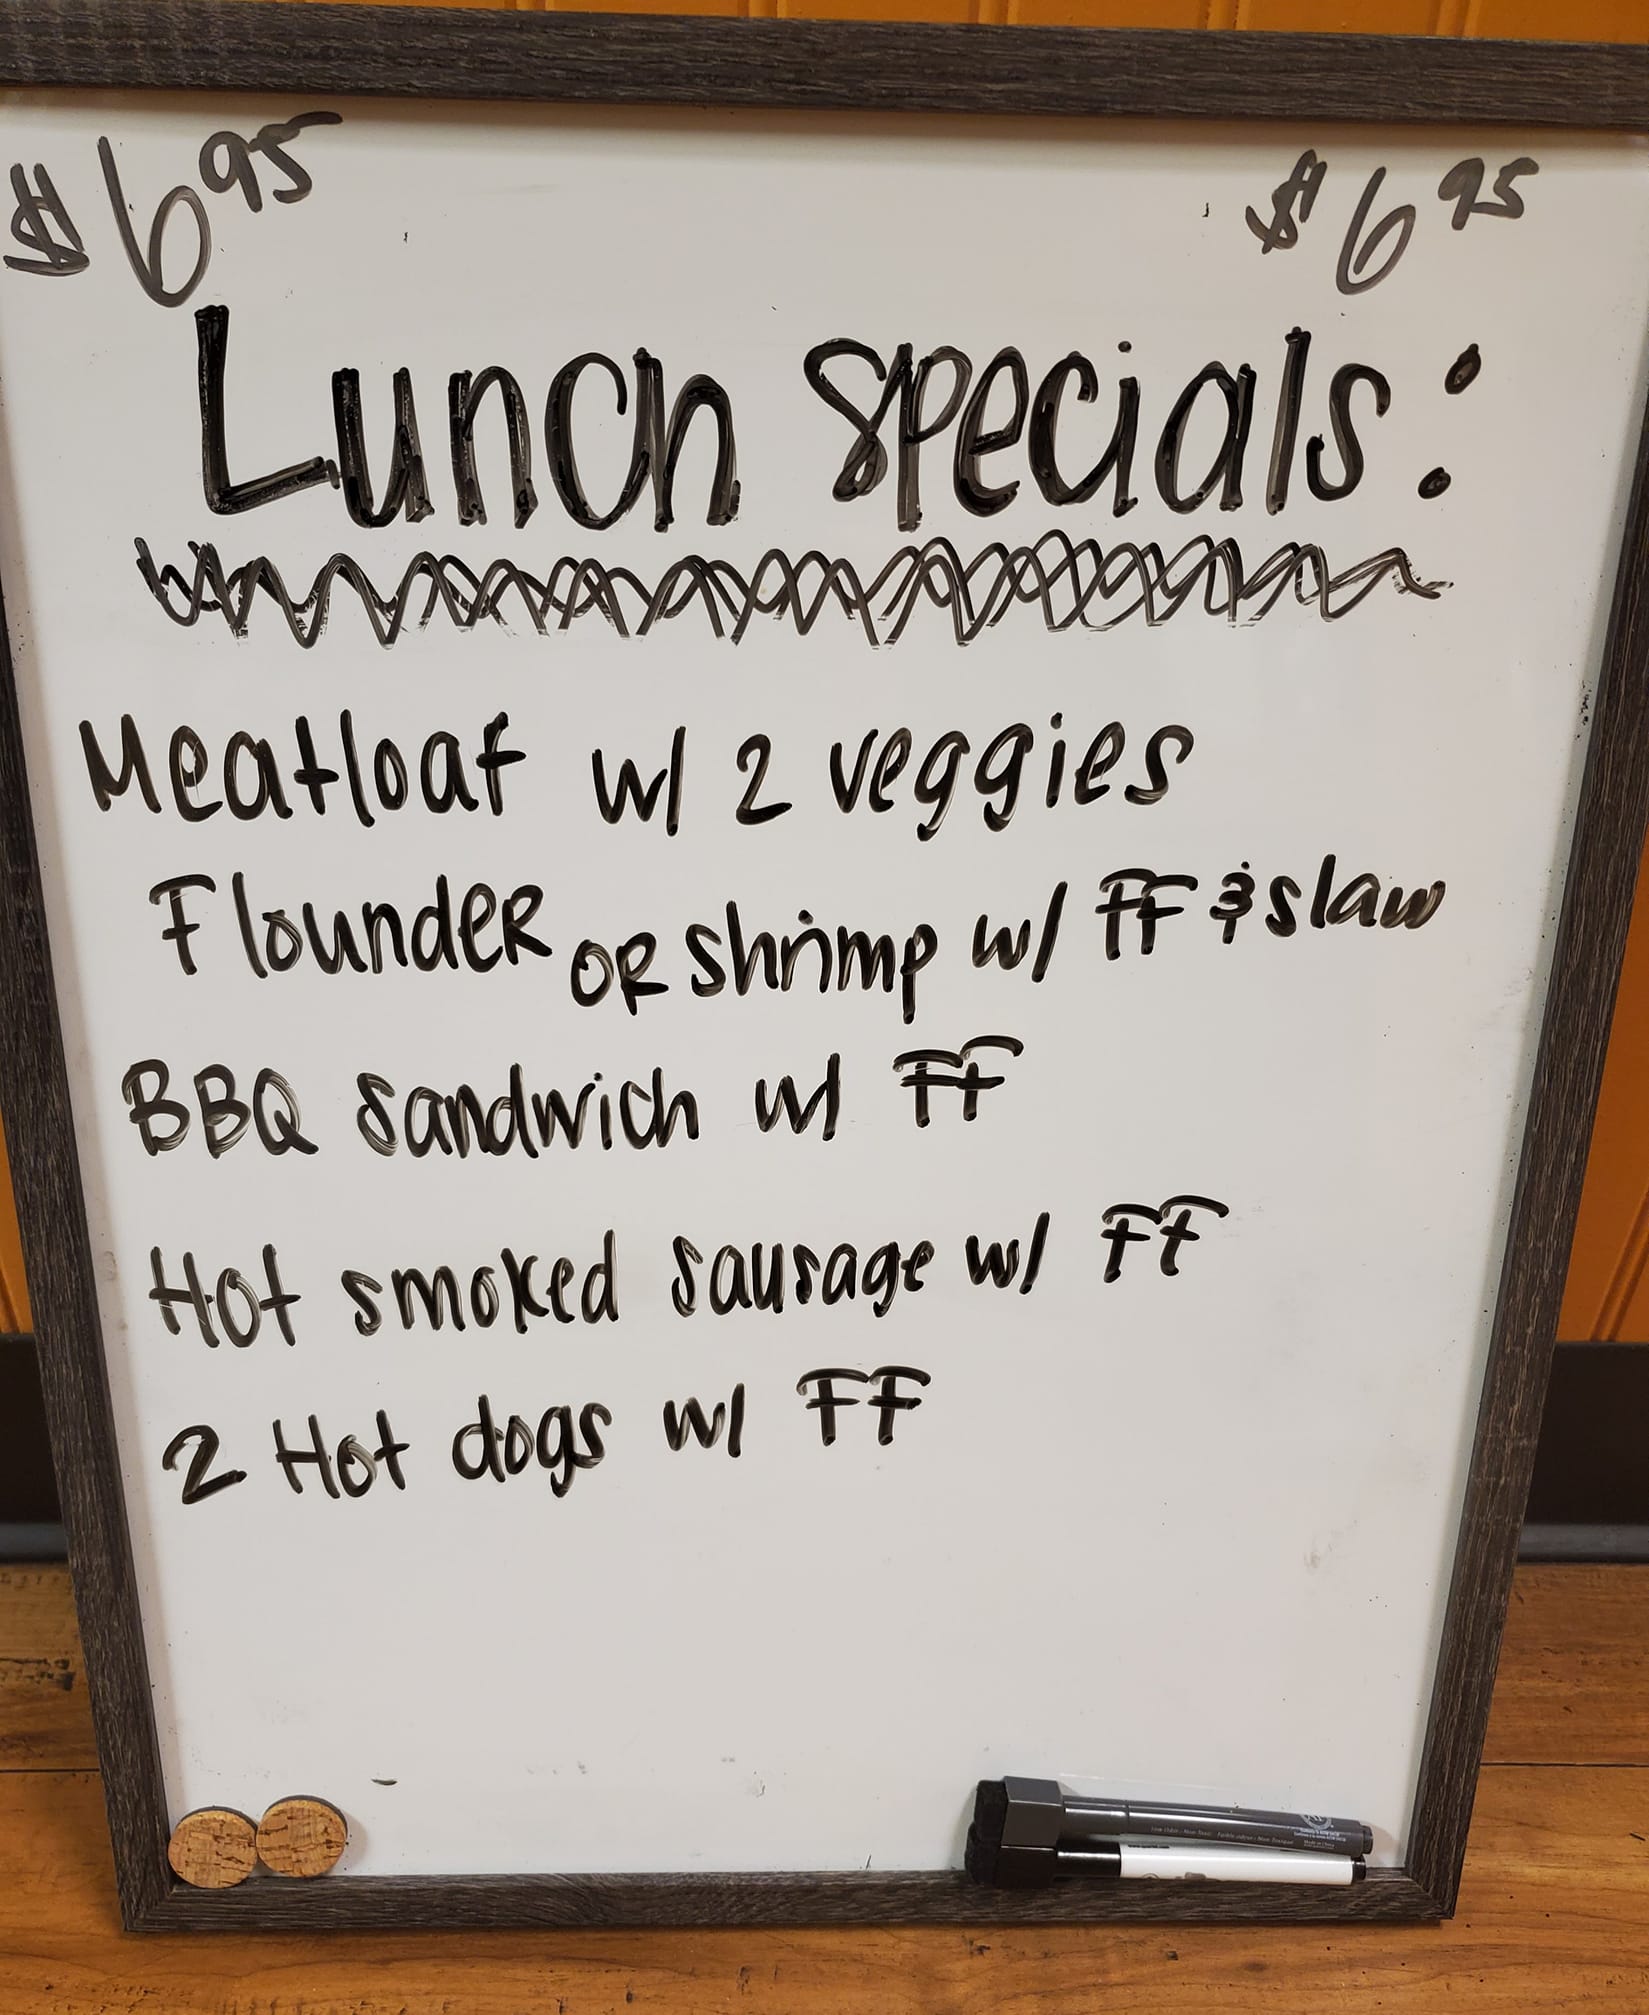 $6 95 $6 95
Lunch Specials:
Meatloaf w/ 2 veggies
Flounder OR shrimp w/ FF & slaw
BBQ Sandwich w/ FF
Hot smoked sausage w/ FF
2 Hot dogs w/ FF